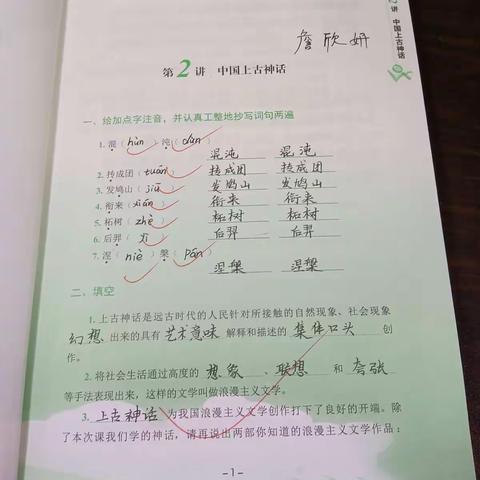 讲 中国上古神话
詹欣妍
第2讲 中国上古神话
一、给加点字注音，并认真工整地抄写词句两遍
1. 混（hùn）沌（dùn）
混沌 混沌
2. 抟成团（tuán） 抟成团 抟成团
3. 发鸠山（jiū） 发鸠山 发鸠山
4. 衔来（xián） 衔来 衔来
5. 柘树（zhè） 柘树 柘树
6. 后羿（yì） 后羿 后羿
7. 涅（niè）槃（pán）
涅槃 涅槃
二、填空
1. 上古神话是远古时代的人民针对所接触的自然现象、社会现象
幻想出来的具有艺术意味解释和描述的集体口头创
作。
2. 将社会生活通过高度的想象、联想和夸张
等手法表现出来，这样的文学叫做浪漫主义文学。
3. 上古神话为我国浪漫主义文学创作打下了良好的开端。除
了本次课我们学的神话，请再说出两部你知道的浪漫主义文学作品：
-1-